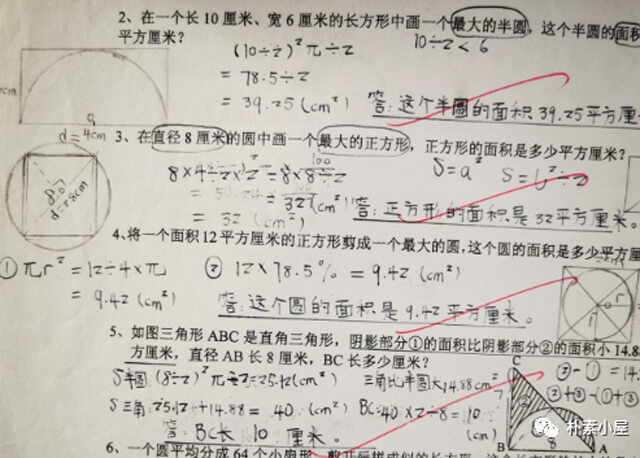 2、在一个长10厘米、宽6厘米的长方形中画一个最大的半圆，这个半圆的面积
平方厘米？
10÷2<6
(10÷2)²π÷2
=78.5÷2
=39.25(cm²) 答:这个半圆的面积39.25平方厘
cm
d=4cm
3、在直径8厘米的圆中画一个最大的正方形，正方形的面积是多少平方厘米？
8×4÷2×2=8×8÷2
S=a² S=L²÷2
=32(cm²)
=32 (cm²)
答:正方形的面积是32平方厘米。
d=8cm
4、将一个面积12平方厘米的正方形剪成一个最大的圆，这个圆的面积是多少平方厘
①πr²=12÷4×π ②12×78.5%=9.42(cm²)
=9.42(cm²)
答:这个圆的面积是9.42平方厘米。
r
r
5、如图三角形ABC是直角三角形，阴影部分①的面积比阴影部分②的面积小14.8
方厘米，直径AB长8厘米，BC长多少厘米？
S半圆:(8÷2)²π÷2=25.12(cm²) 三角比半圆大14.88cm²
S三角:25.12+14.88=40(cm²) BC:40×2÷8=10(cm)
答:BC长10厘米。
C
②-①=14.
②+③-(①+③)
B 8 A
6、一个圆平均分成64个小扇形，剪开后拼成近似的长方形，
朴素小屋